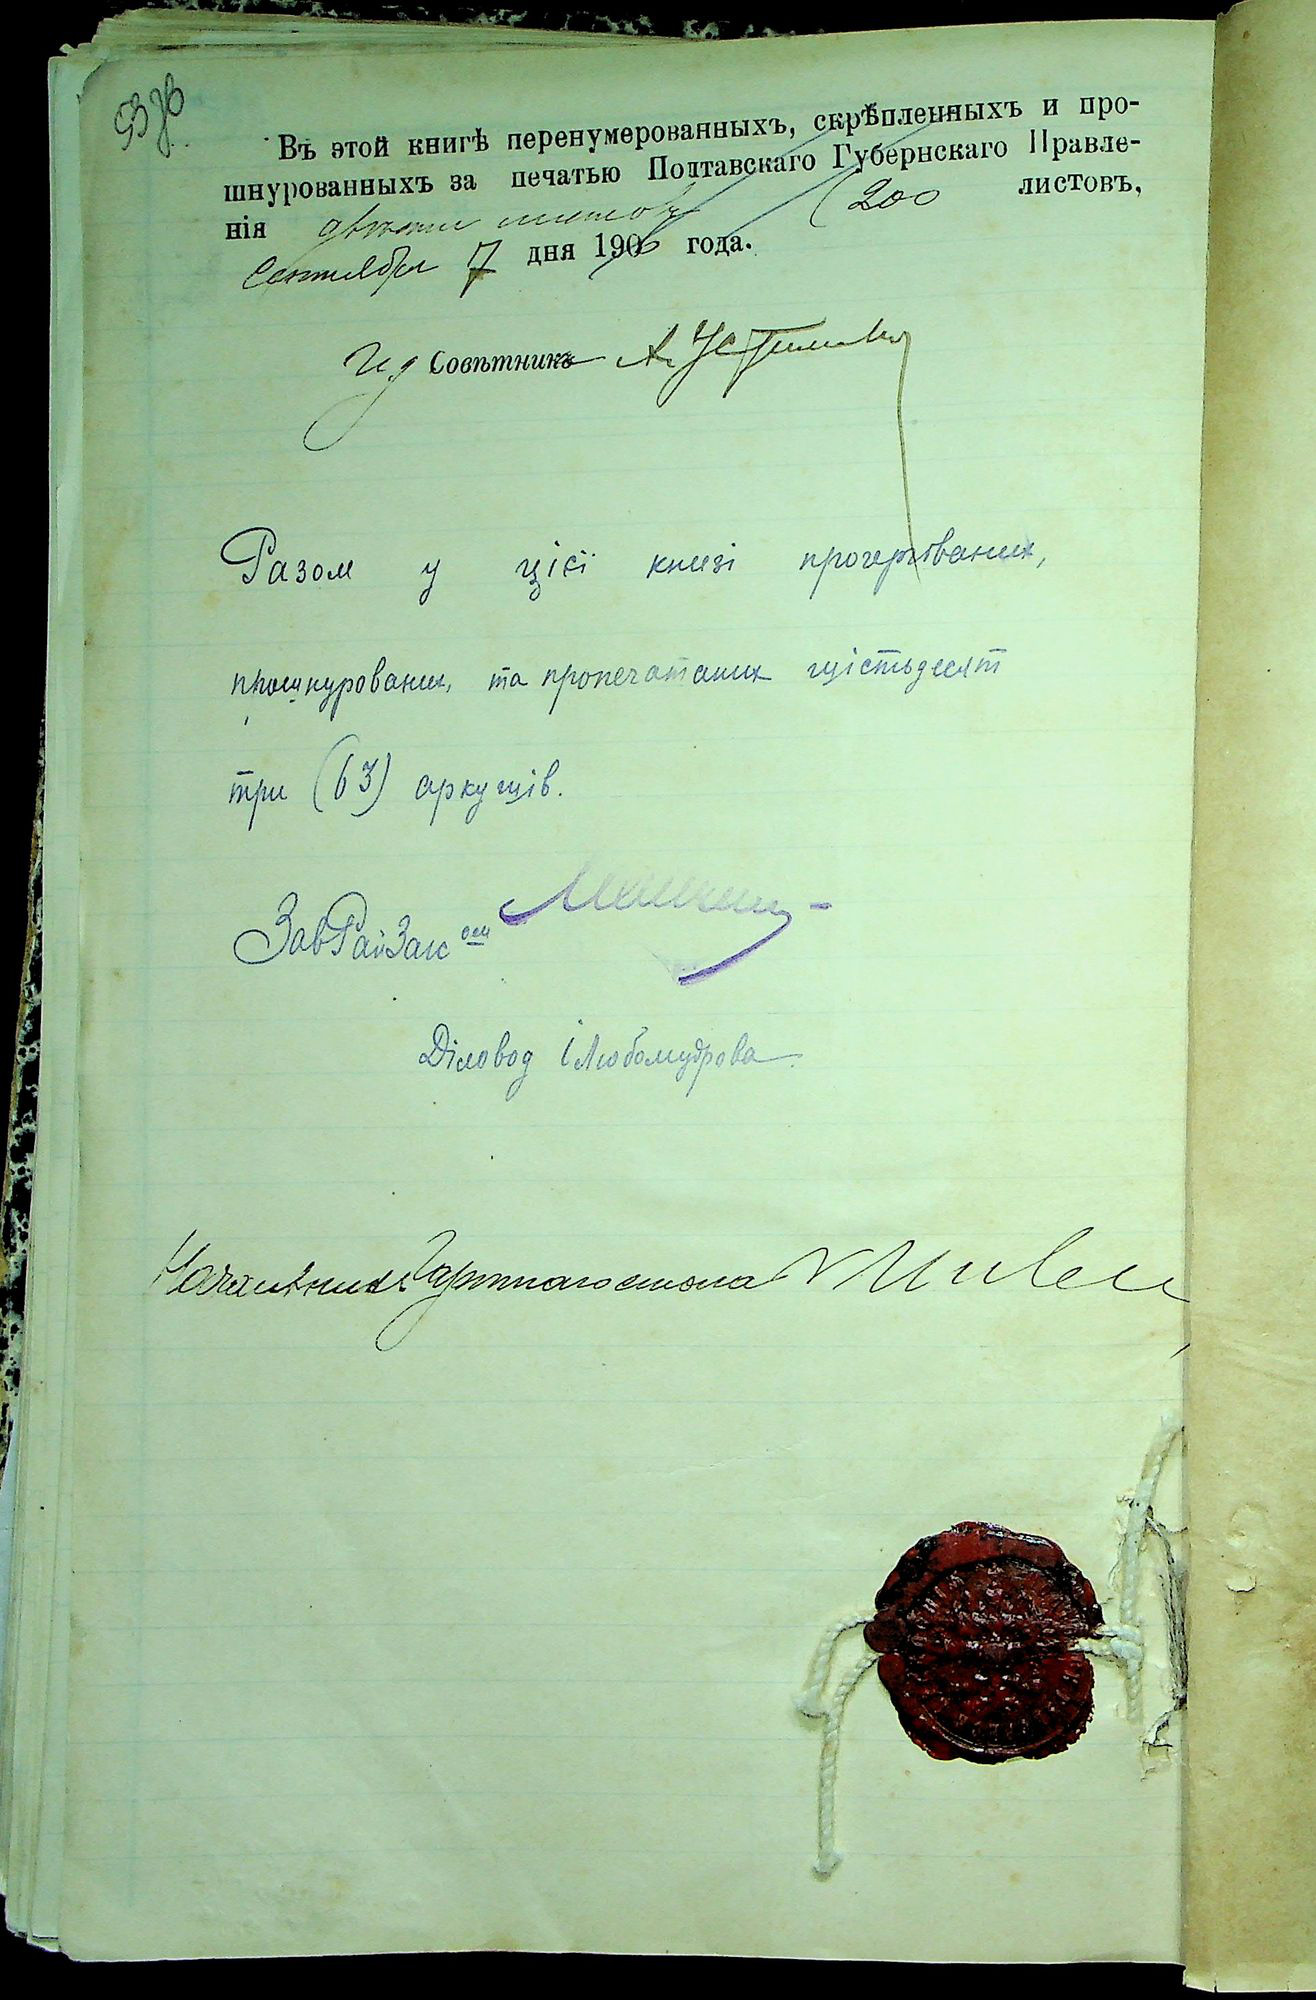 Въ этой книгѣ перенумерованныхъ, скрѣпленныхъ и про-
шнурованныхъ за печатью Полтавскаго Губернскаго Правле-
нія двѣсти листовъ (200 листовъ,
Сентября 7 дня 1906 года.
И д Совѣтникъ А.
Разом у цієї книзі прочертованих,
прошнурованих, та пропечатаних шістьдесят
три (63) аркушів.
ЗавРайЗаг ом
Діловод Любомудрова
Начальник стола